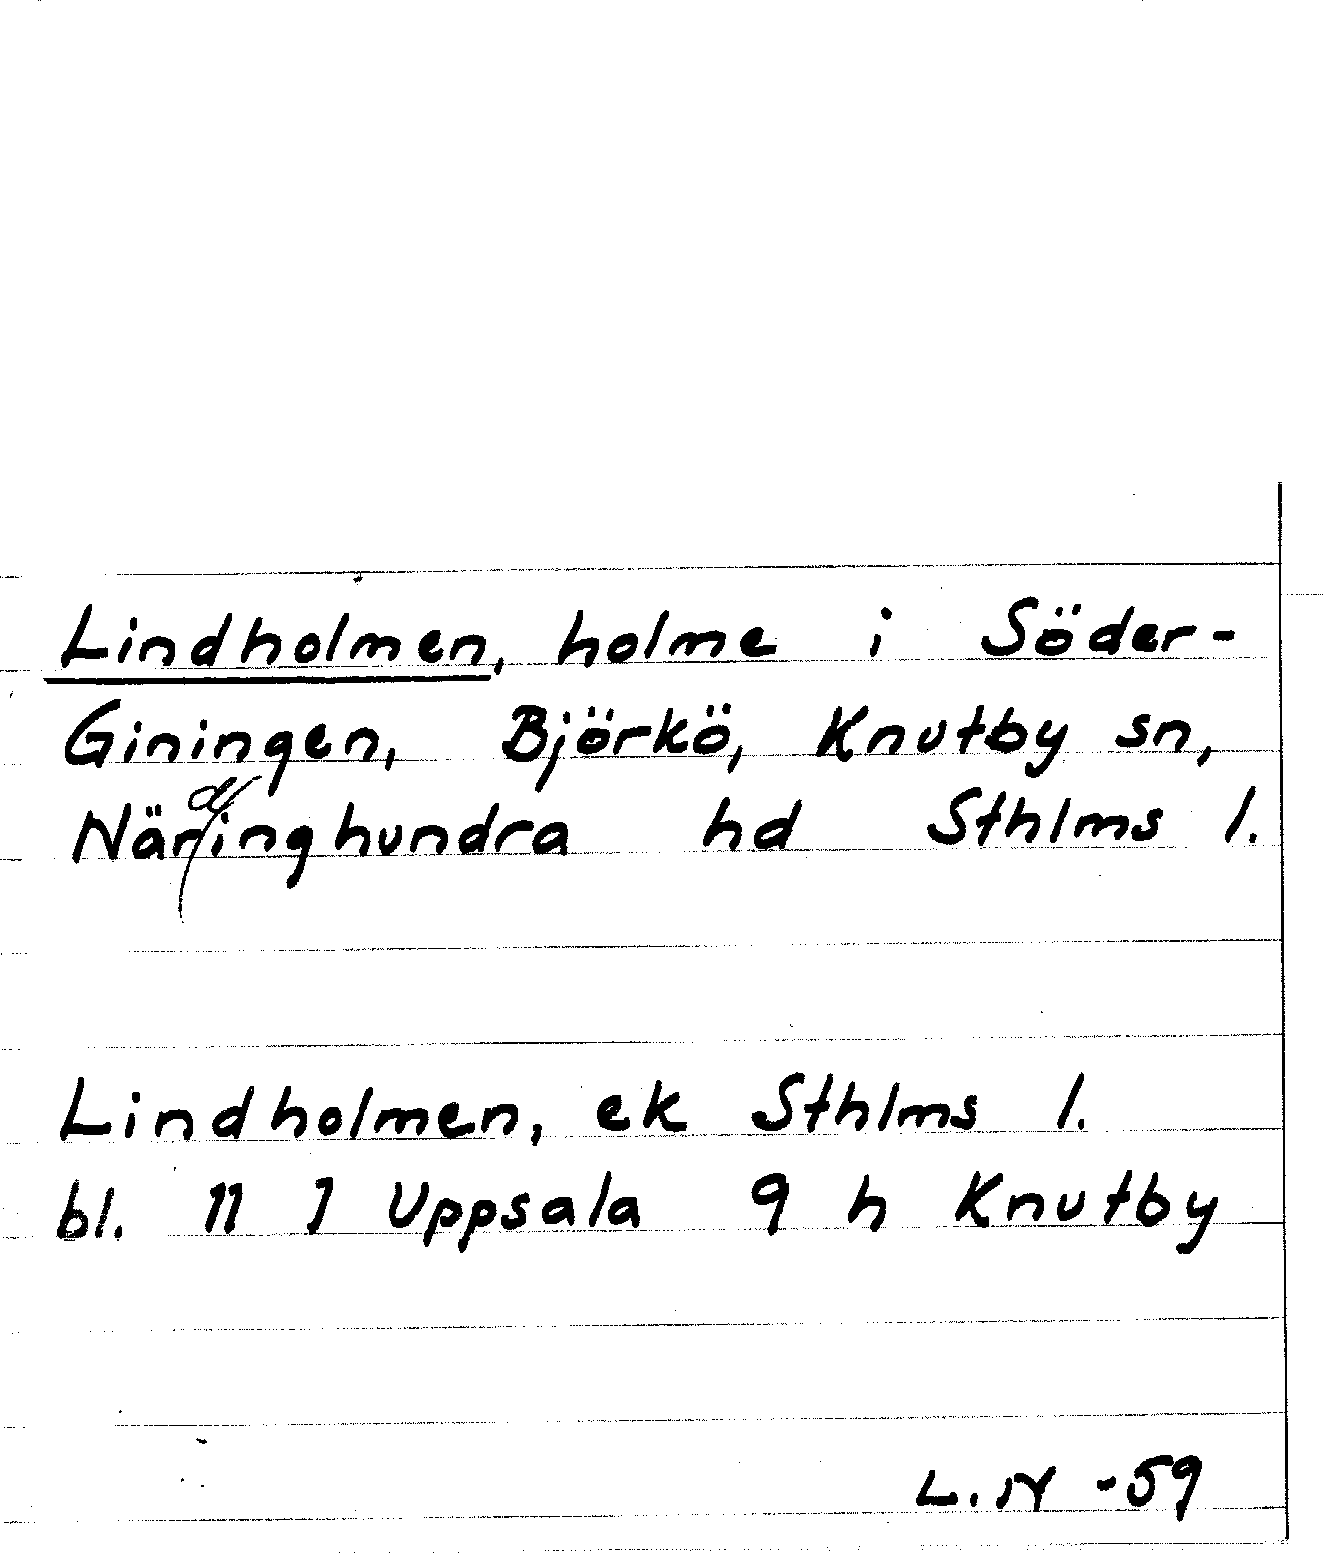 Lindholmen, holme i Söder-
Giningen, Björkö, Knutby sn,
Närdinghundra hd Sthlms l.
Lindholmen, ek Sthlms l.
bl. 11 J Uppsala 9 h Knutby
L. N -59